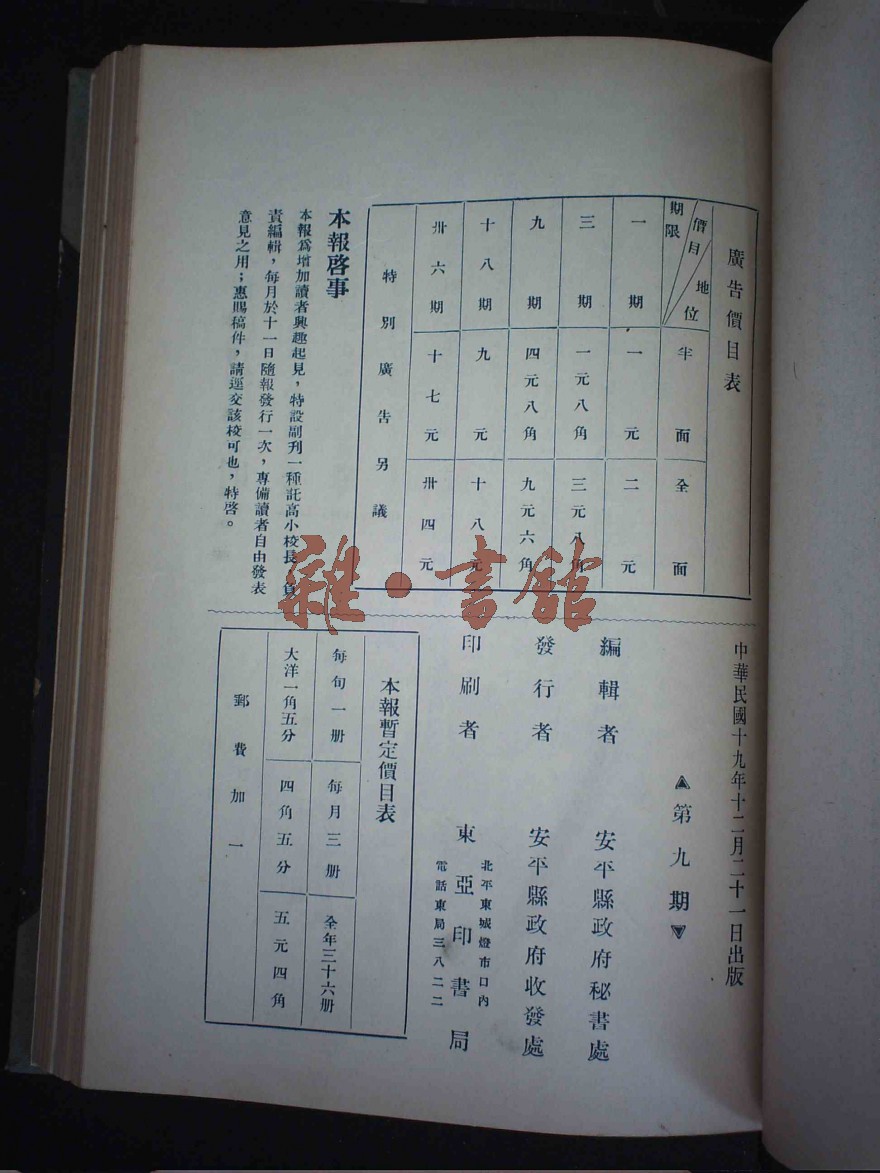 廣告價目表
期限 價目 地位 半面 全面
一期 一元 二元
三期 一元八角 三元八角
九期 四元八角 九元六角
十八期 九元 十八元
卅六期 十七元 卅四元
特別廣告另議
本報啓事
本報為增加讀者興趣起見，特設副刋一種託高小校長 負
責編輯，每月於十一日隨報發行一次，專備讀者自由發表
意見之用；惠賜稿件，請逕交該校可也，特啓。
中華民國十九年十二月二十一日出版
第九期
編輯者 安平縣政府秘書處
發行者 安平縣政府收發處
印刷者 東亞印書局
北平東城燈市口內
電話東局三八二二
本報暫定價目表
每旬一册 每月三册 全年三十六册
大洋一角五分 四角五分 五元四角
郵費加一
雜·書館